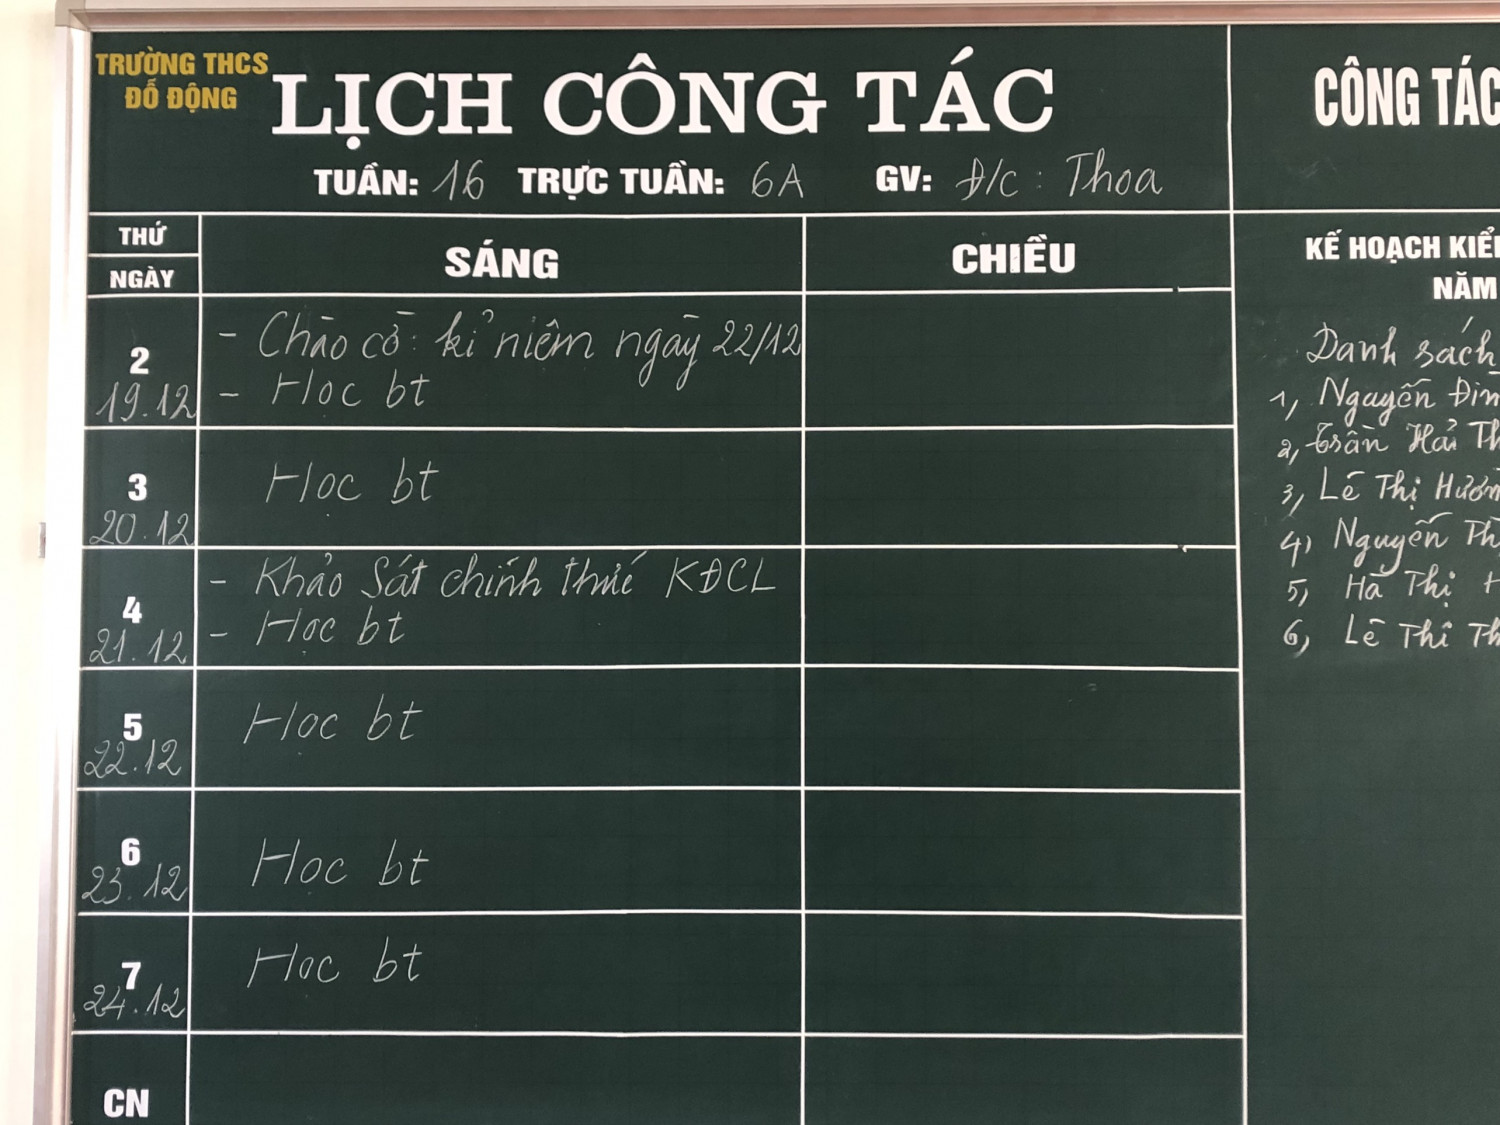 TRƯỜNG THCS
ĐỖ ĐỘNG
LỊCH CÔNG TÁC
TUẦN: 16 TRỰC TUẦN: 6A GV: Đ/c: Thoa
THỨ
NGÀY
SÁNG
CHIỀU
2
19.12
- Chào cờ: kỉ niệm ngày 22/12
- Học bt
3
20.12
Học bt
4
21.12
- Khảo sát chính thức KĐCL
- Học bt
5
22.12
Học bt
6
23.12
Học bt
7
24.12
Học bt
CN
CÔNG TÁC
KẾ HOẠCH
NĂM
Danh sách
1, Nguyễn
2, Trần Hải
3, Lê Thị
4, Nguyễn
5, Hà Thị
6, Lê Thị